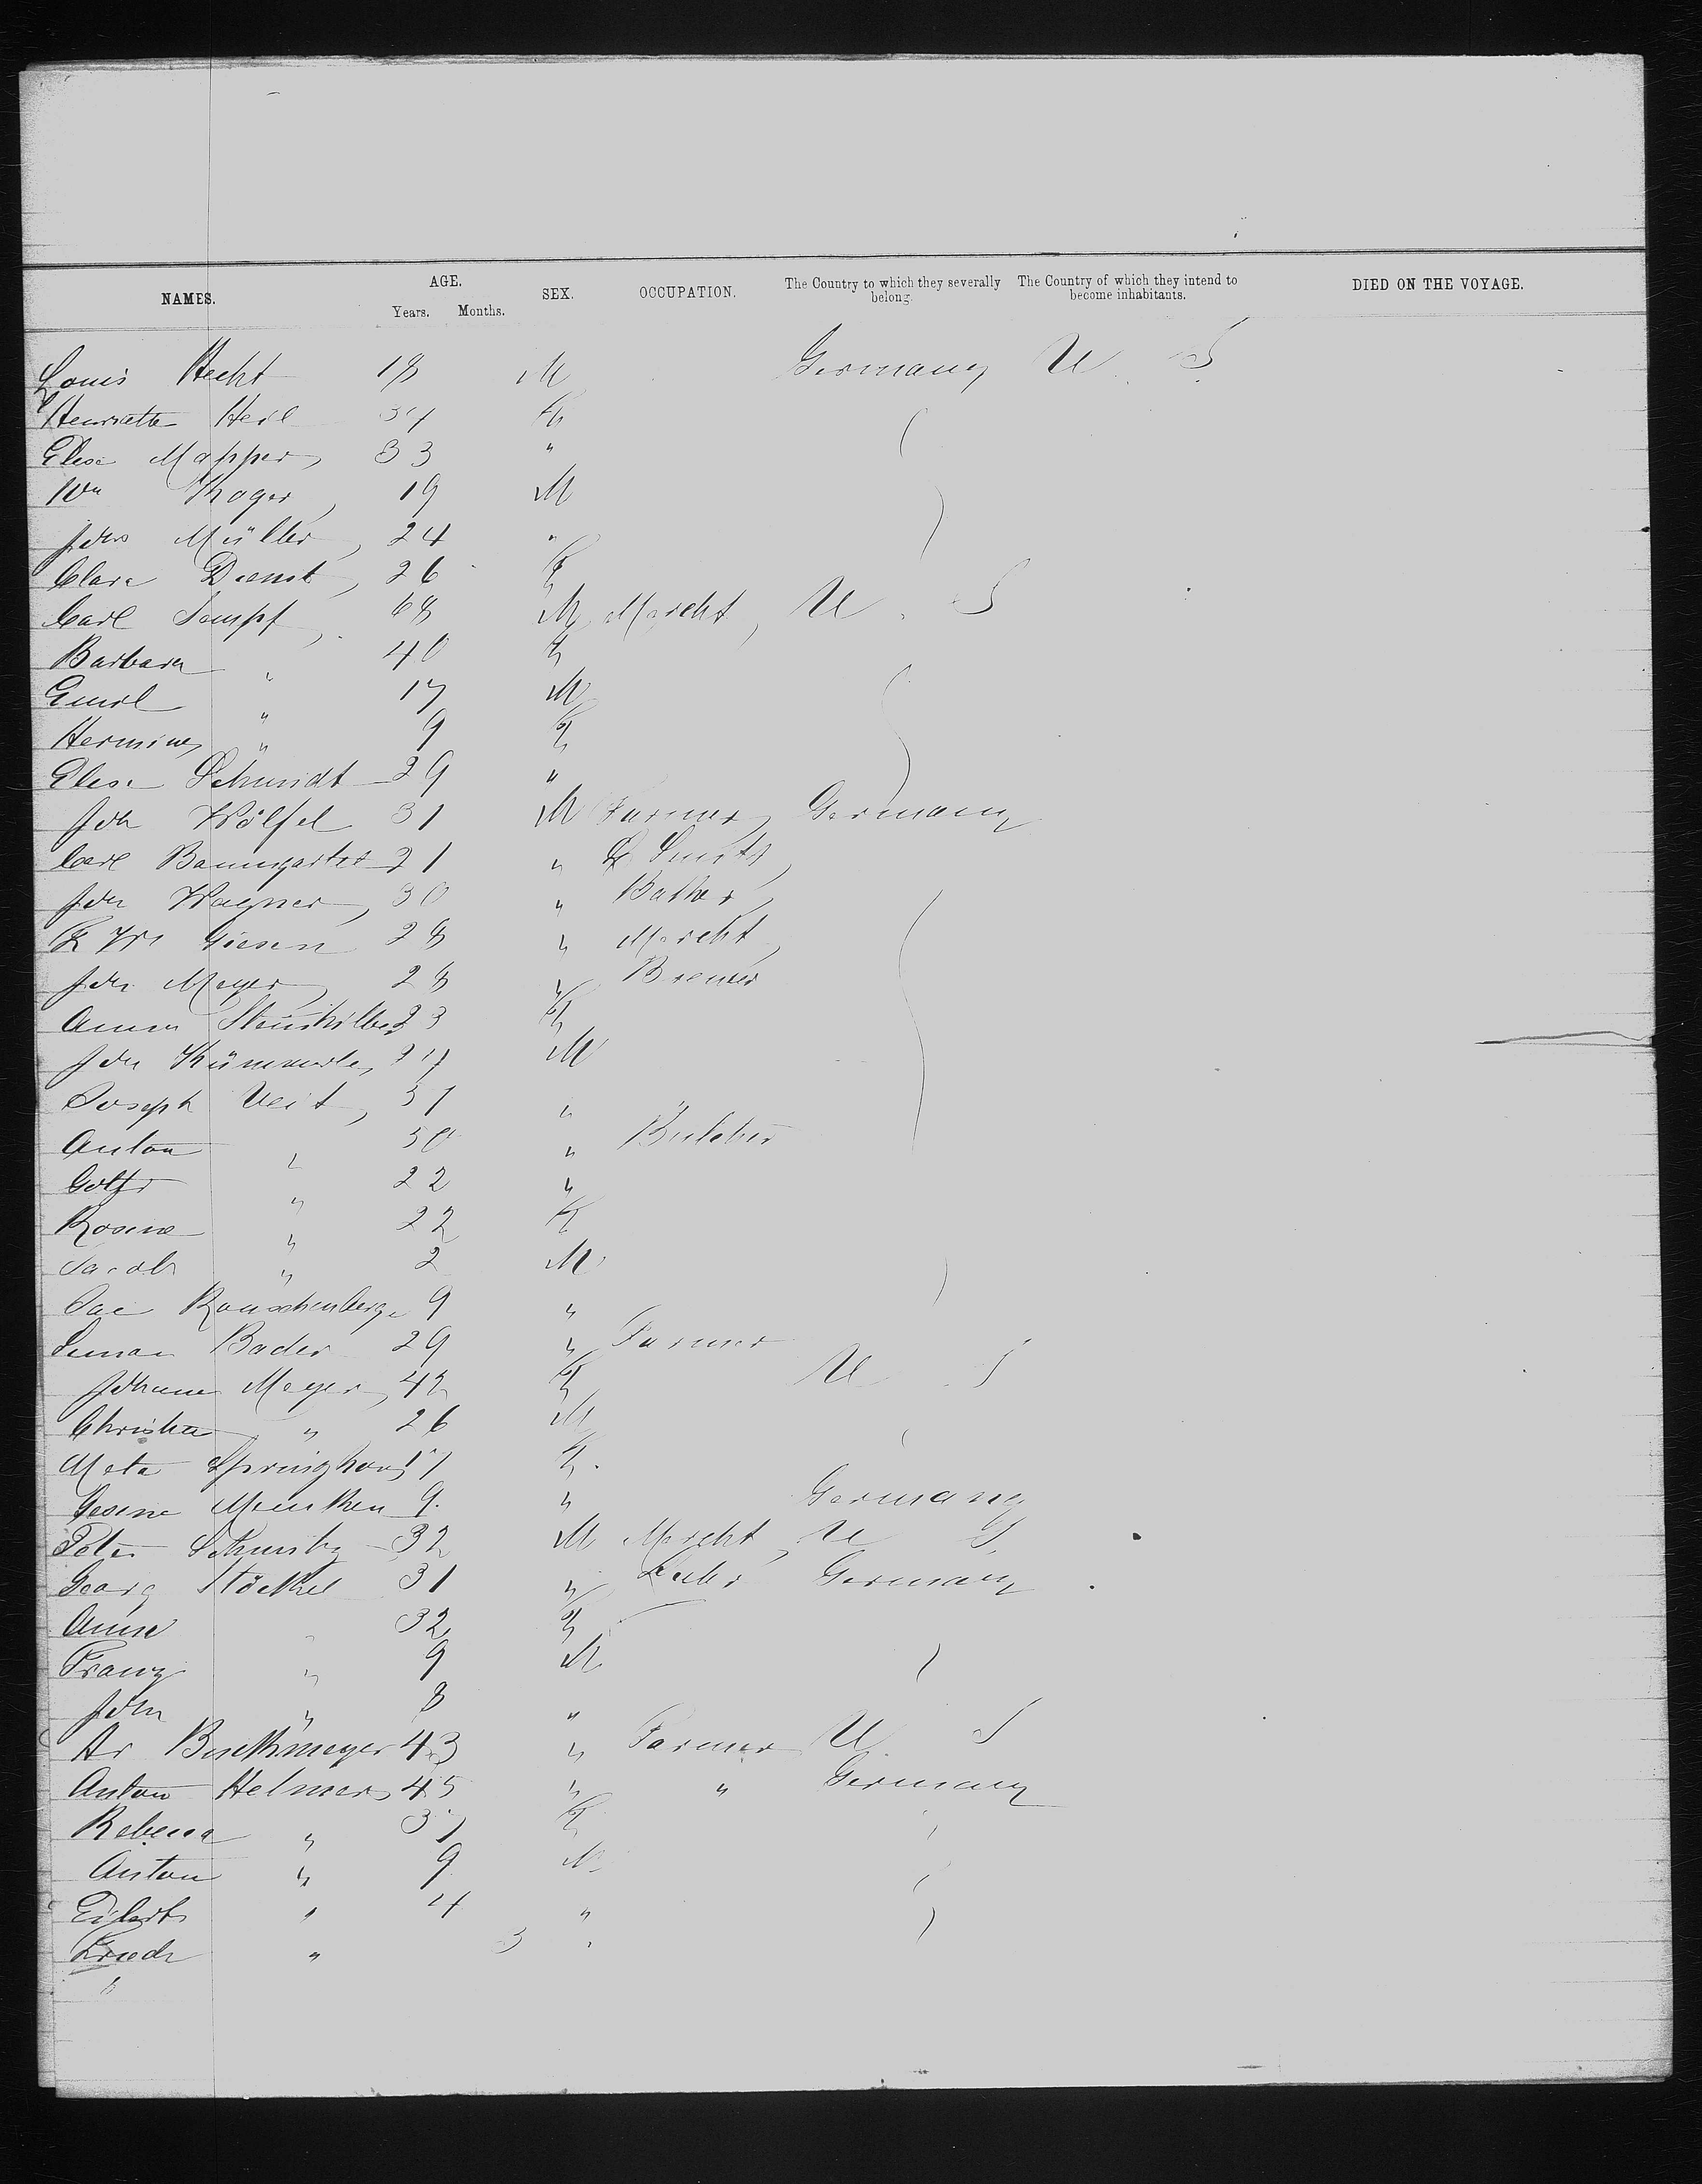 NAMES. AGE. Years. Months. SEX. OCCUPATION. The Country to which they severally belong. The Country of which they intend to become inhabitants. DIED ON THE VOYAGE.
Louis Hecht 18 M Germany U. S.
Henriette Heil 37 F
Elise Mapper 33 "
Wm Kroger 19 M
Johs Müller 24 "
Clara Dienst 26 F
Carl Sempf 68 M Mercht U. S
Barbara " 40 F
Emil " 17 M
Hermine " 9 F
Elise Schmidt 29 "
Joh Wölfel 31 M Farmer Germany
Carl Baumgarter 21 "
Joh Wagner 30 " Baker
F Wm Giesen 28 " Mercht
Joh Meyer 28 " Brewer
Anna 23 F
Joh Kümmerle M
Joseph Veit 51 "
Anton " 50 " Butcher
Gottfr " 22 "
Rosine " 22 F
Jacob " 2 M
Rauschenberge 9 "
Simon Bader 29 " Farmer
Johanne Meyer 42 F U S
Christian " 26 M
Meta Springhorn 17 F
Gesine Menken 9 " Germany
Peter 32 M Mercht U S
Georg Stöckel 31 " Germany
Anna " 32 F
Franz " 9 M
John " 8 "
Hr Buckmeyer 43 " Farmer U. S
Anton Helmers 45 " " Germany
Rebecca " 37 F
Anton " 9 M
Eilert " 4 "
Friedr " 3 "